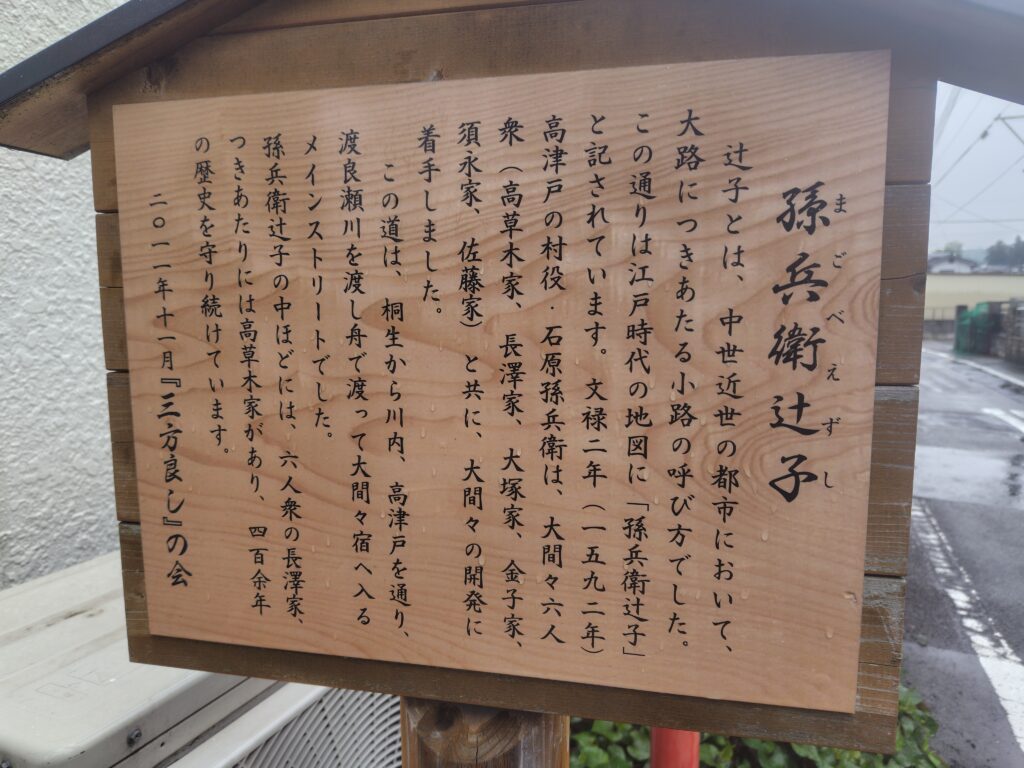 孫兵衛辻子
まごべえずし
辻子とは、中世近世の都市において、
大路につきあたる小路の呼び方でした。
この通りは江戸時代の地図に「孫兵衛辻子」
と記されています。文禄二年（一五九二年）
高津戸の村役・石原孫兵衛は、大間々六人
衆（高草木家、長澤家、大塚家、金子家、
須永家、佐藤家）と共に、大間々の開発に
着手しました。
この道は、桐生から川内、高津戸を通り、
渡良瀬川を渡し舟で渡って大間々宿へ入る
メインストリートでした。
孫兵衛辻子の中ほどには、六人衆の長澤家、
つきあたりには高草木家があり、四百余年
の歴史を守り続けています。
二〇一一年十一月『三方良し』の会